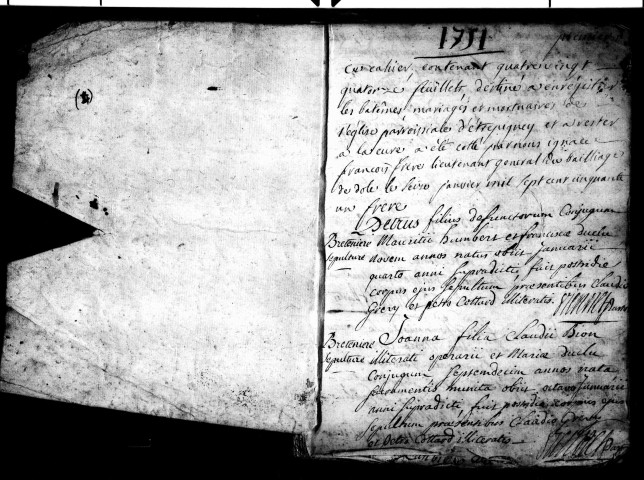 1751
premier
(4)
ce cahier, contenant quatrevingt
quatorze feuillets, destiné a enregistrer
les batêmes, mariages et mortuaires de
l'eglise parroissiale d'etrepigney et a rester
a la cure a été cotté par nous ignace
francois frere lieutenant general au bailliage
de dole le seize janvier mil sept cent cinquante
un frere
Petrus filius defunctorum Conjugum
Breteniere Mauritii humbert et francisca duclu
sepulture novem annos natus obiit januarii
quarto anni supradicti, fuit postridie
corpus ejus sepultum praesentibus Claudio
Grevy et petro Cottard illiteratis.
Breteniere Joanna filia Claudii Bion
sepulture illiterati operarii et Mariæ duclu
Conjugum septemdecim annos nata
sacramentis munita obiit octavo januarii
anni supradicti, fuit postridie corpus ejus
sepultum praesentibus Claudio Grevy
et Petro Cottard illiteratis